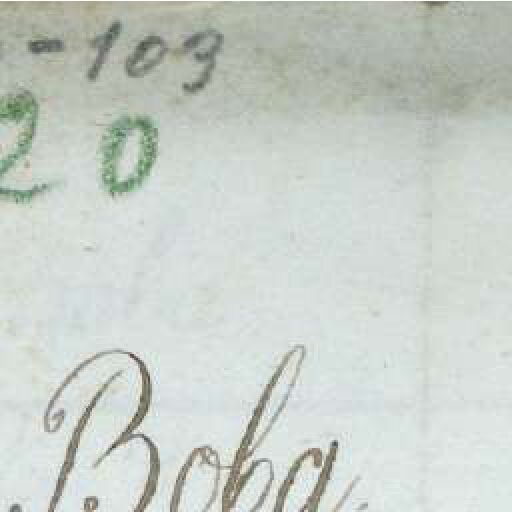 -103
20
Boba